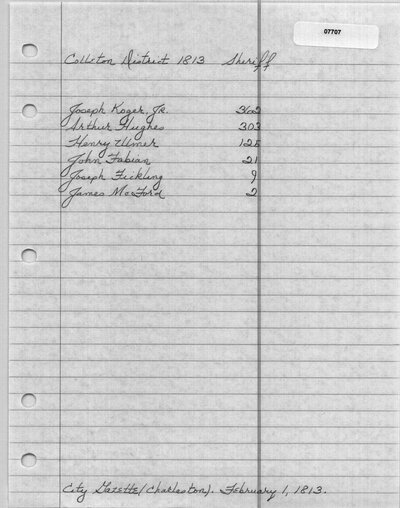 07707
Colleton District 1813 Sheriff
Joseph Koger, Jr. 362
Arthur Hughes 303
Henry Ulmer 125
John Fabian 21
Joseph Fickling 9
James McFord 2
City Gazette (Charleston). February 1, 1813.